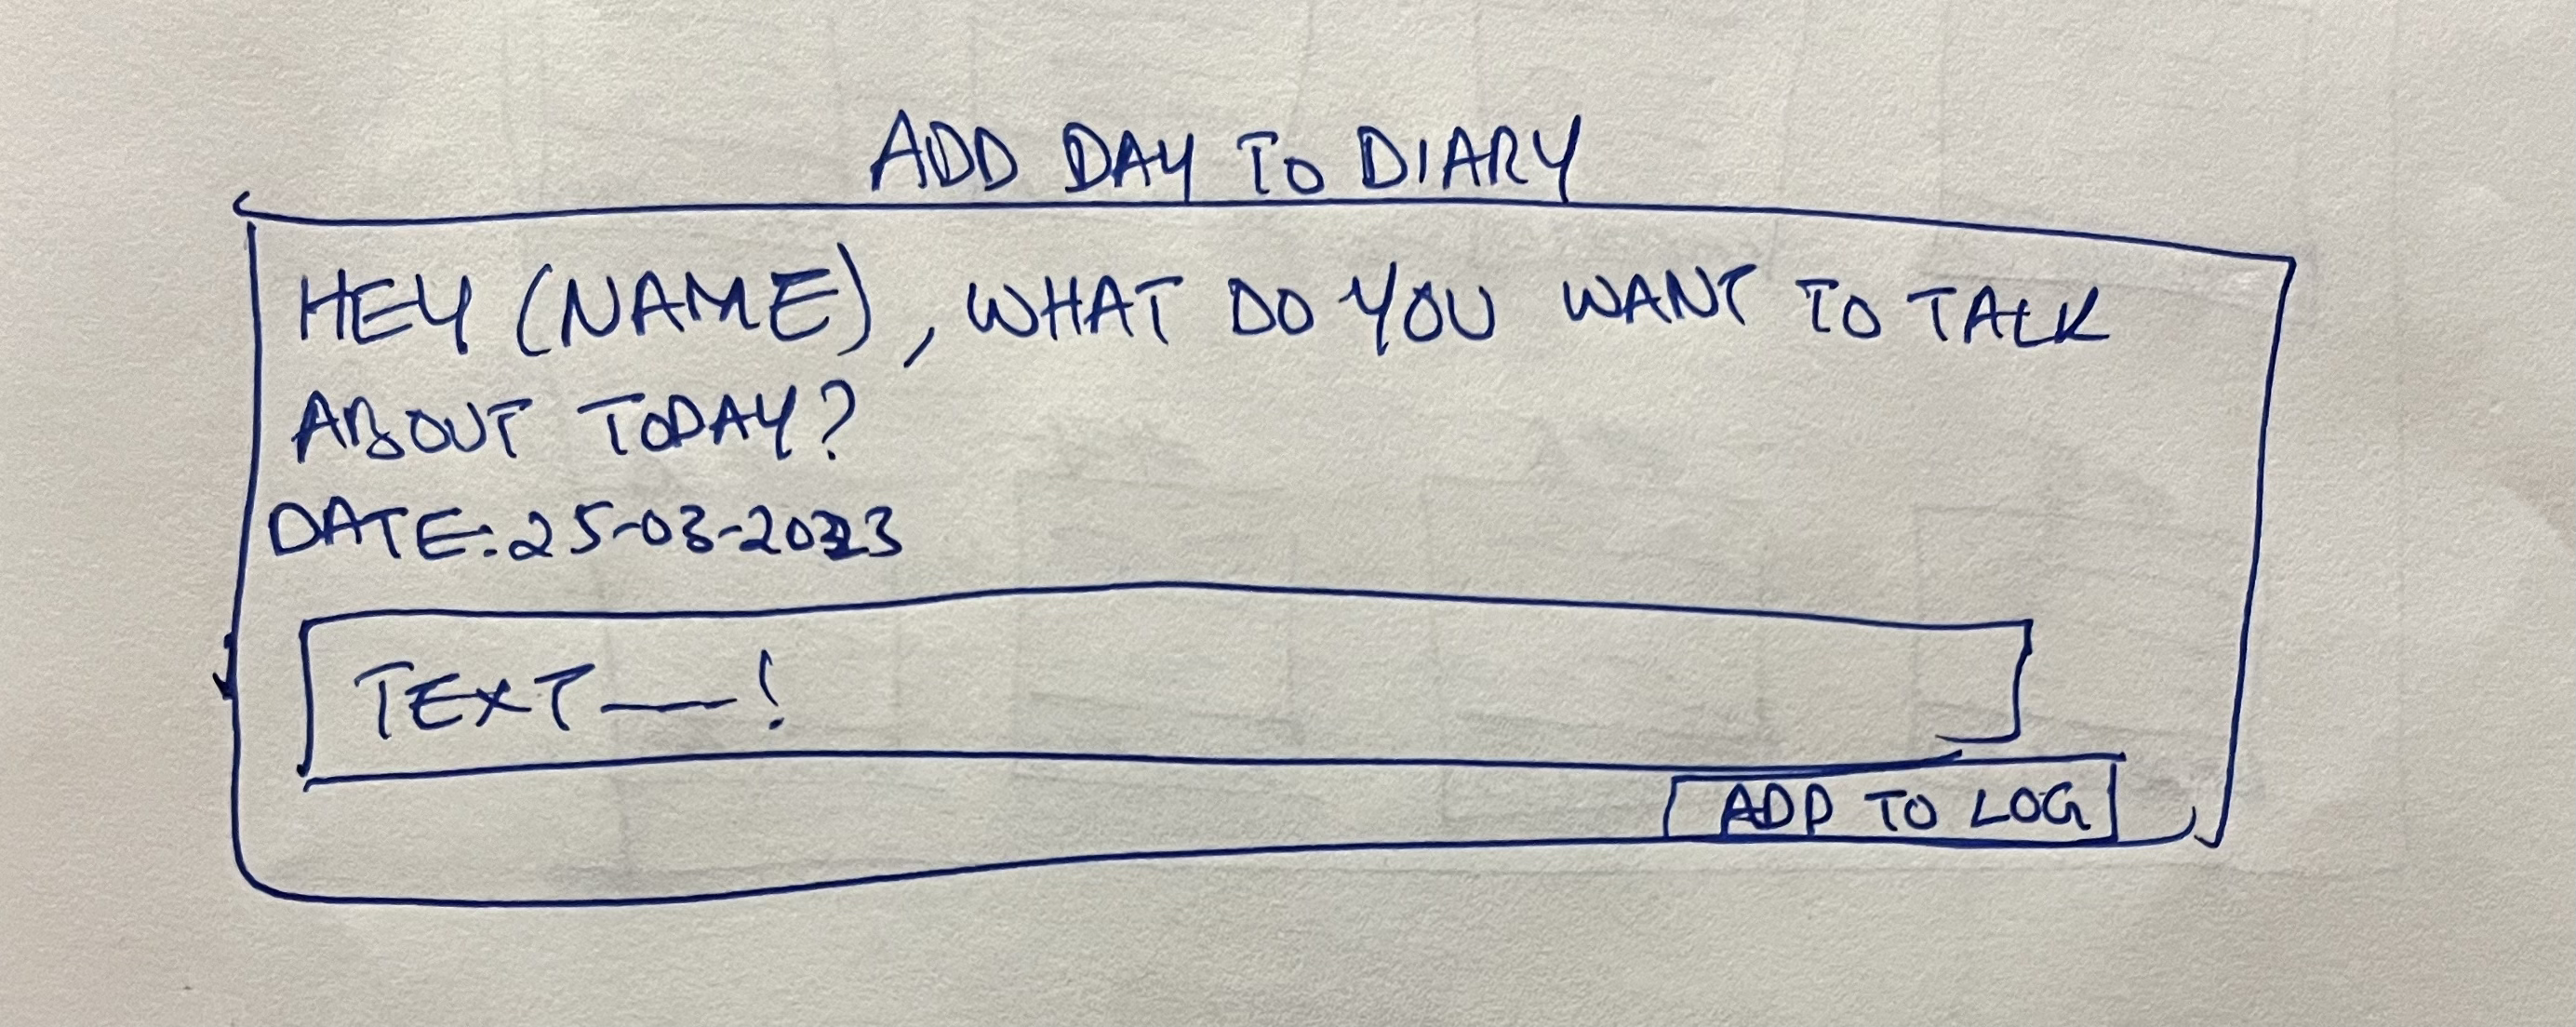 ADD DAY TO DIARY
HEY (NAME), WHAT DO YOU WANT TO TALK
ABOUT TODAY?
DATE: 25-03-2023
TEXT—!
ADD TO LOG